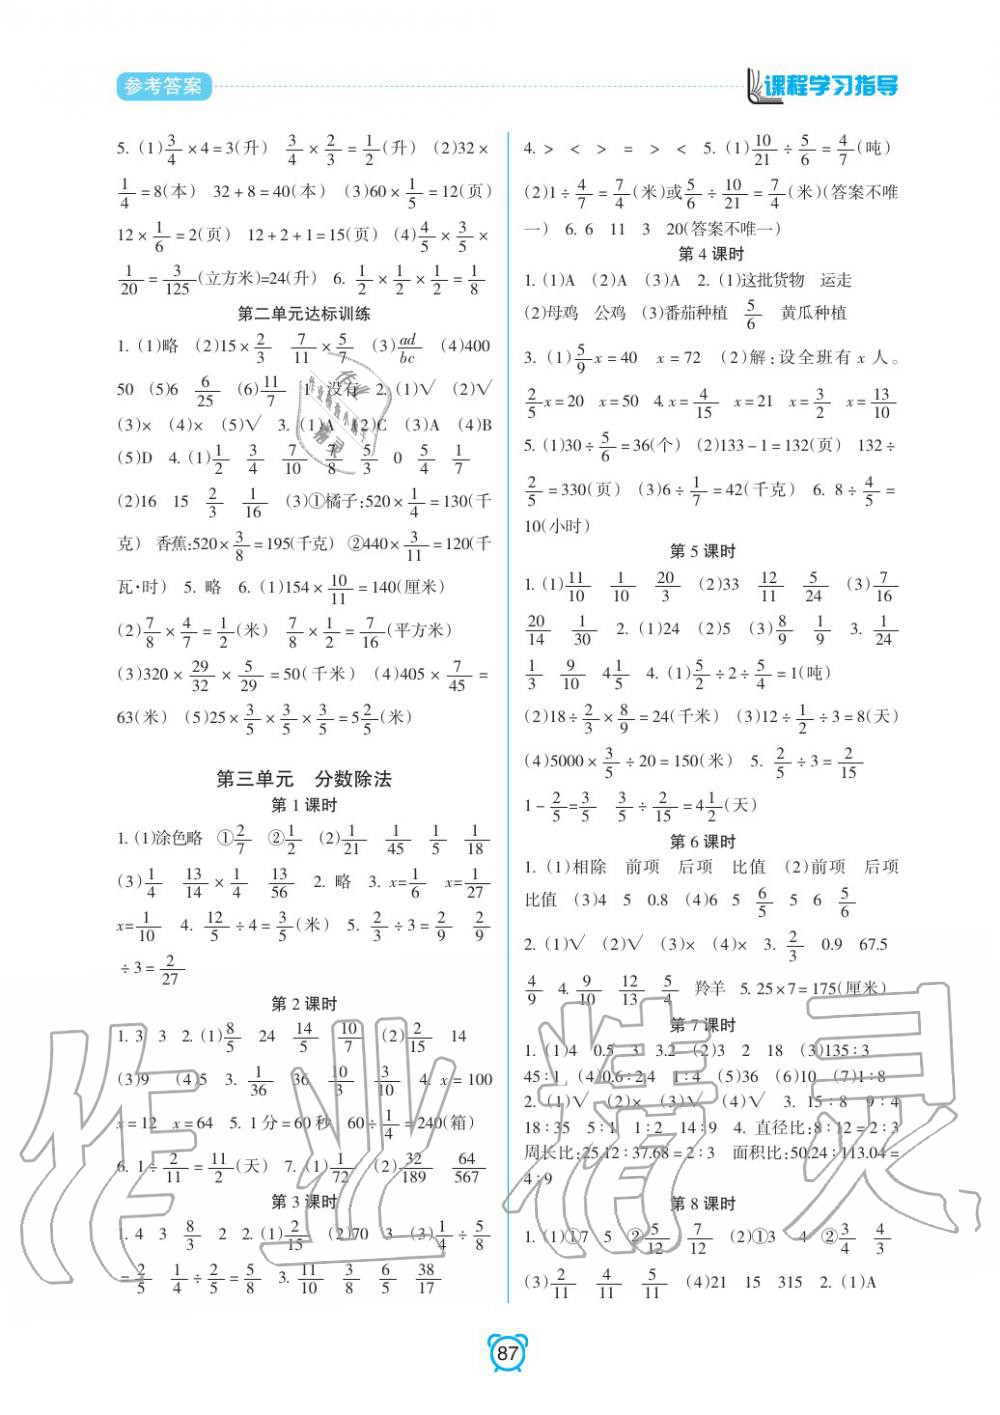 参考答案
课程学习指导
5. (1)3/4×4=3(升) 3/4×2/3=1/2(升) (2)32×
1/4=8(本) 32+8=40(本) (3)60×1/5=12(页)
12×1/6=2(页) 12+2+1=15(页) (4)4/5×3/5×
1/20=3/125(立方米)=24(升) 6. 1/2×1/2×1/2=1/8
第二单元达标训练
1. (1)略 (2)15×2/3 7/11×5/7 (3)ad/bc (4)400
50 (5)6 6/25 (6)11/7 1 没有 2. (1)√ (2)√
(3)× (4)× (5)√ 3. (1)A (2)C (3)A (4)B
(5)D 4. (1)1/2 3/4 7/10 7/8 5/3 0 5/4 1/7
(2)16 15 2/3 1/16 (3)①橘子:520×1/4=130(千
克) 香蕉:520×3/8=195(千克) ②440×3/11=120(千
瓦·时) 5. 略 6. (1)154×10/11=140(厘米)
(2)7/8×4/7=1/2(米) 7/8×1/2=7/16(平方米)
(3)320×29/32×5/29=50(千米) (4)405×7/45=
63(米) (5)25×3/5×3/5×3/5=5 2/5(米)
第三单元 分数除法
第 1 课时
1. (1)涂色略 ①2/7 ②1/2 (2)1/21 1/45 1/5 1/18
(3)1/4 13/14×1/4 13/56 2. 略 3. x=1/6 x=1/27
x=1/10 4. 12/5÷4=3/5(米) 5. 2/3÷3=2/9 2/9
÷3=2/27
第 2 课时
1. 3 3 2. (1)8/5 24 14/5 10/7 (2)2/15 14
(3)9 (4)5 3. 1/36 36 10/3 3/10 4. x=100
x=12 x=64 5. 1分=60秒 60÷1/4=240(箱)
6. 1÷2/11=11/2(天) 7. (1)1/72 (2)32/189 64/567
第 3 课时
1. 4 3 8/3 2 2. (1)2/15 (2)70 3 (3)1/4÷5/8
=2/5 1/4÷2/5=5/8 3. 11/10 3/8 6/5 38/17
4. > < > = > < 5. (1)10/21÷5/6=4/7(吨)
(2)1÷4/7=7/4(米)或5/6÷10/21=7/4(米)(答案不唯
一) 6. 6 11 3 20(答案不唯一)
第 4 课时
1. (1)A (2)A (3)A 2. (1)这批货物 运走
(2)母鸡 公鸡 (3)番茄种植 5/6 黄瓜种植
3. (1)5/9x=40 x=72 (2)解:设全班有x人。
2/5x=20 x=50 4. x=4/15 x=21 x=3/2 x=13/10
5. (1)30÷5/6=36(个) (2)133-1=132(页) 132÷
2/5=330(页) (3)6÷1/7=42(千克) 6. 8÷4/5=
10(小时)
第 5 课时
1. (1)11/10 1/10 20/3 (2)33 12/11 5/24 (3)7/16
20/14 1/30 2. (1)24 (2)5 (3)8/9 1/9 3. 1/24
1/3 9/10 4 1/5 4. (1)5/2÷2÷5/4=1(吨)
(2)18÷2/3×8/9=24(千米) (3)12÷1/2÷3=8(天)
(4)5000×3/5÷20=150(米) 5. 2/5÷3=2/15
1-2/5=3/5 3/5÷2/15=4 1/2(天)
第 6 课时
1. (1)相除 前项 后项 比值 (2)前项 后项
比值 (3)4 5 0.8 (4)6 5 6/5 5 6 5/6
2. (1)√ (2)√ (3)× (4)× 3. 2/3 0.9 67.5
4/9 4. 9/10 12/13 5/4 羚羊 5. 25×7=175(厘米)
第 7 课时
1. (1)4 0.5 3 3.2 (2)3 2 18 (3)135∶3
45∶1 (4)0.6∶2.4 1∶4 (5)36 (6)10 (7)1∶8
2. (1)√ (2)× (3)√ (4)√ 3. 15∶8 9∶4
18∶35 5∶1 1∶2 14∶9 4. 直径比:8∶12=2∶3
周长比:25.12∶37.68=2∶3 面积比:50.24∶113.04=
4∶9
第 8 课时
1. (1)①7 5 ②5/12 7/12 (2)①3 4 ②3/4 4/3
(3)2/11 4/11 5/11 (4)21 15 315 2. (1)A
87
作业精灵